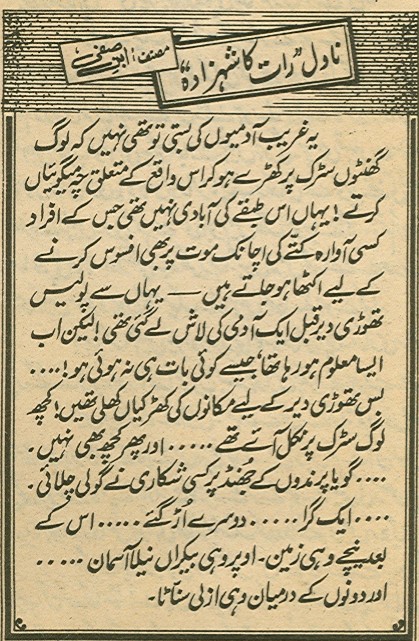 ناول "رات کا شہزادہ"
مصنف: ابن صفی
یہ غریب آدمیوں کی بستی تو تھی نہیں کہ لوگ
گھنٹوں سڑک پر کھڑے ہو کر اس واقع کے متعلق چہ میگوئیاں
کرتے! یہاں اس طبقے کی آبادی نہیں تھی جس کے افراد
کسی آوارہ کتّے کی اچانک موت پر بھی افسوس کرنے
کے لیے اکٹھا ہو جاتے ہیں — یہاں سے پولیس
تھوڑی دیر قبل ایک آدمی کی لاش لے گئی تھی! لیکن اب
ایسا معلوم ہو رہا تھا، جیسے کوئی بات ہی نہ ہوئی ہو!....
بس تھوڑی دیر کے لیے مکانوں کی کھڑکیاں کھلی تھیں! کچھ
لوگ سڑک پر نکل آئے تھے ..... اور پھر کچھ بھی نہیں۔
.... گویا پرندوں کے جھنڈ پر کسی شکاری نے گولی چلائی۔
.... ایک گرا ..... دوسرے اُڑ گئے ..... اس کے
بعد نیچے وہی زمین۔ اوپر وہی بیکراں نیلا آسمان .....
اور دونوں کے درمیان وہی ازلی سنّاٹا۔